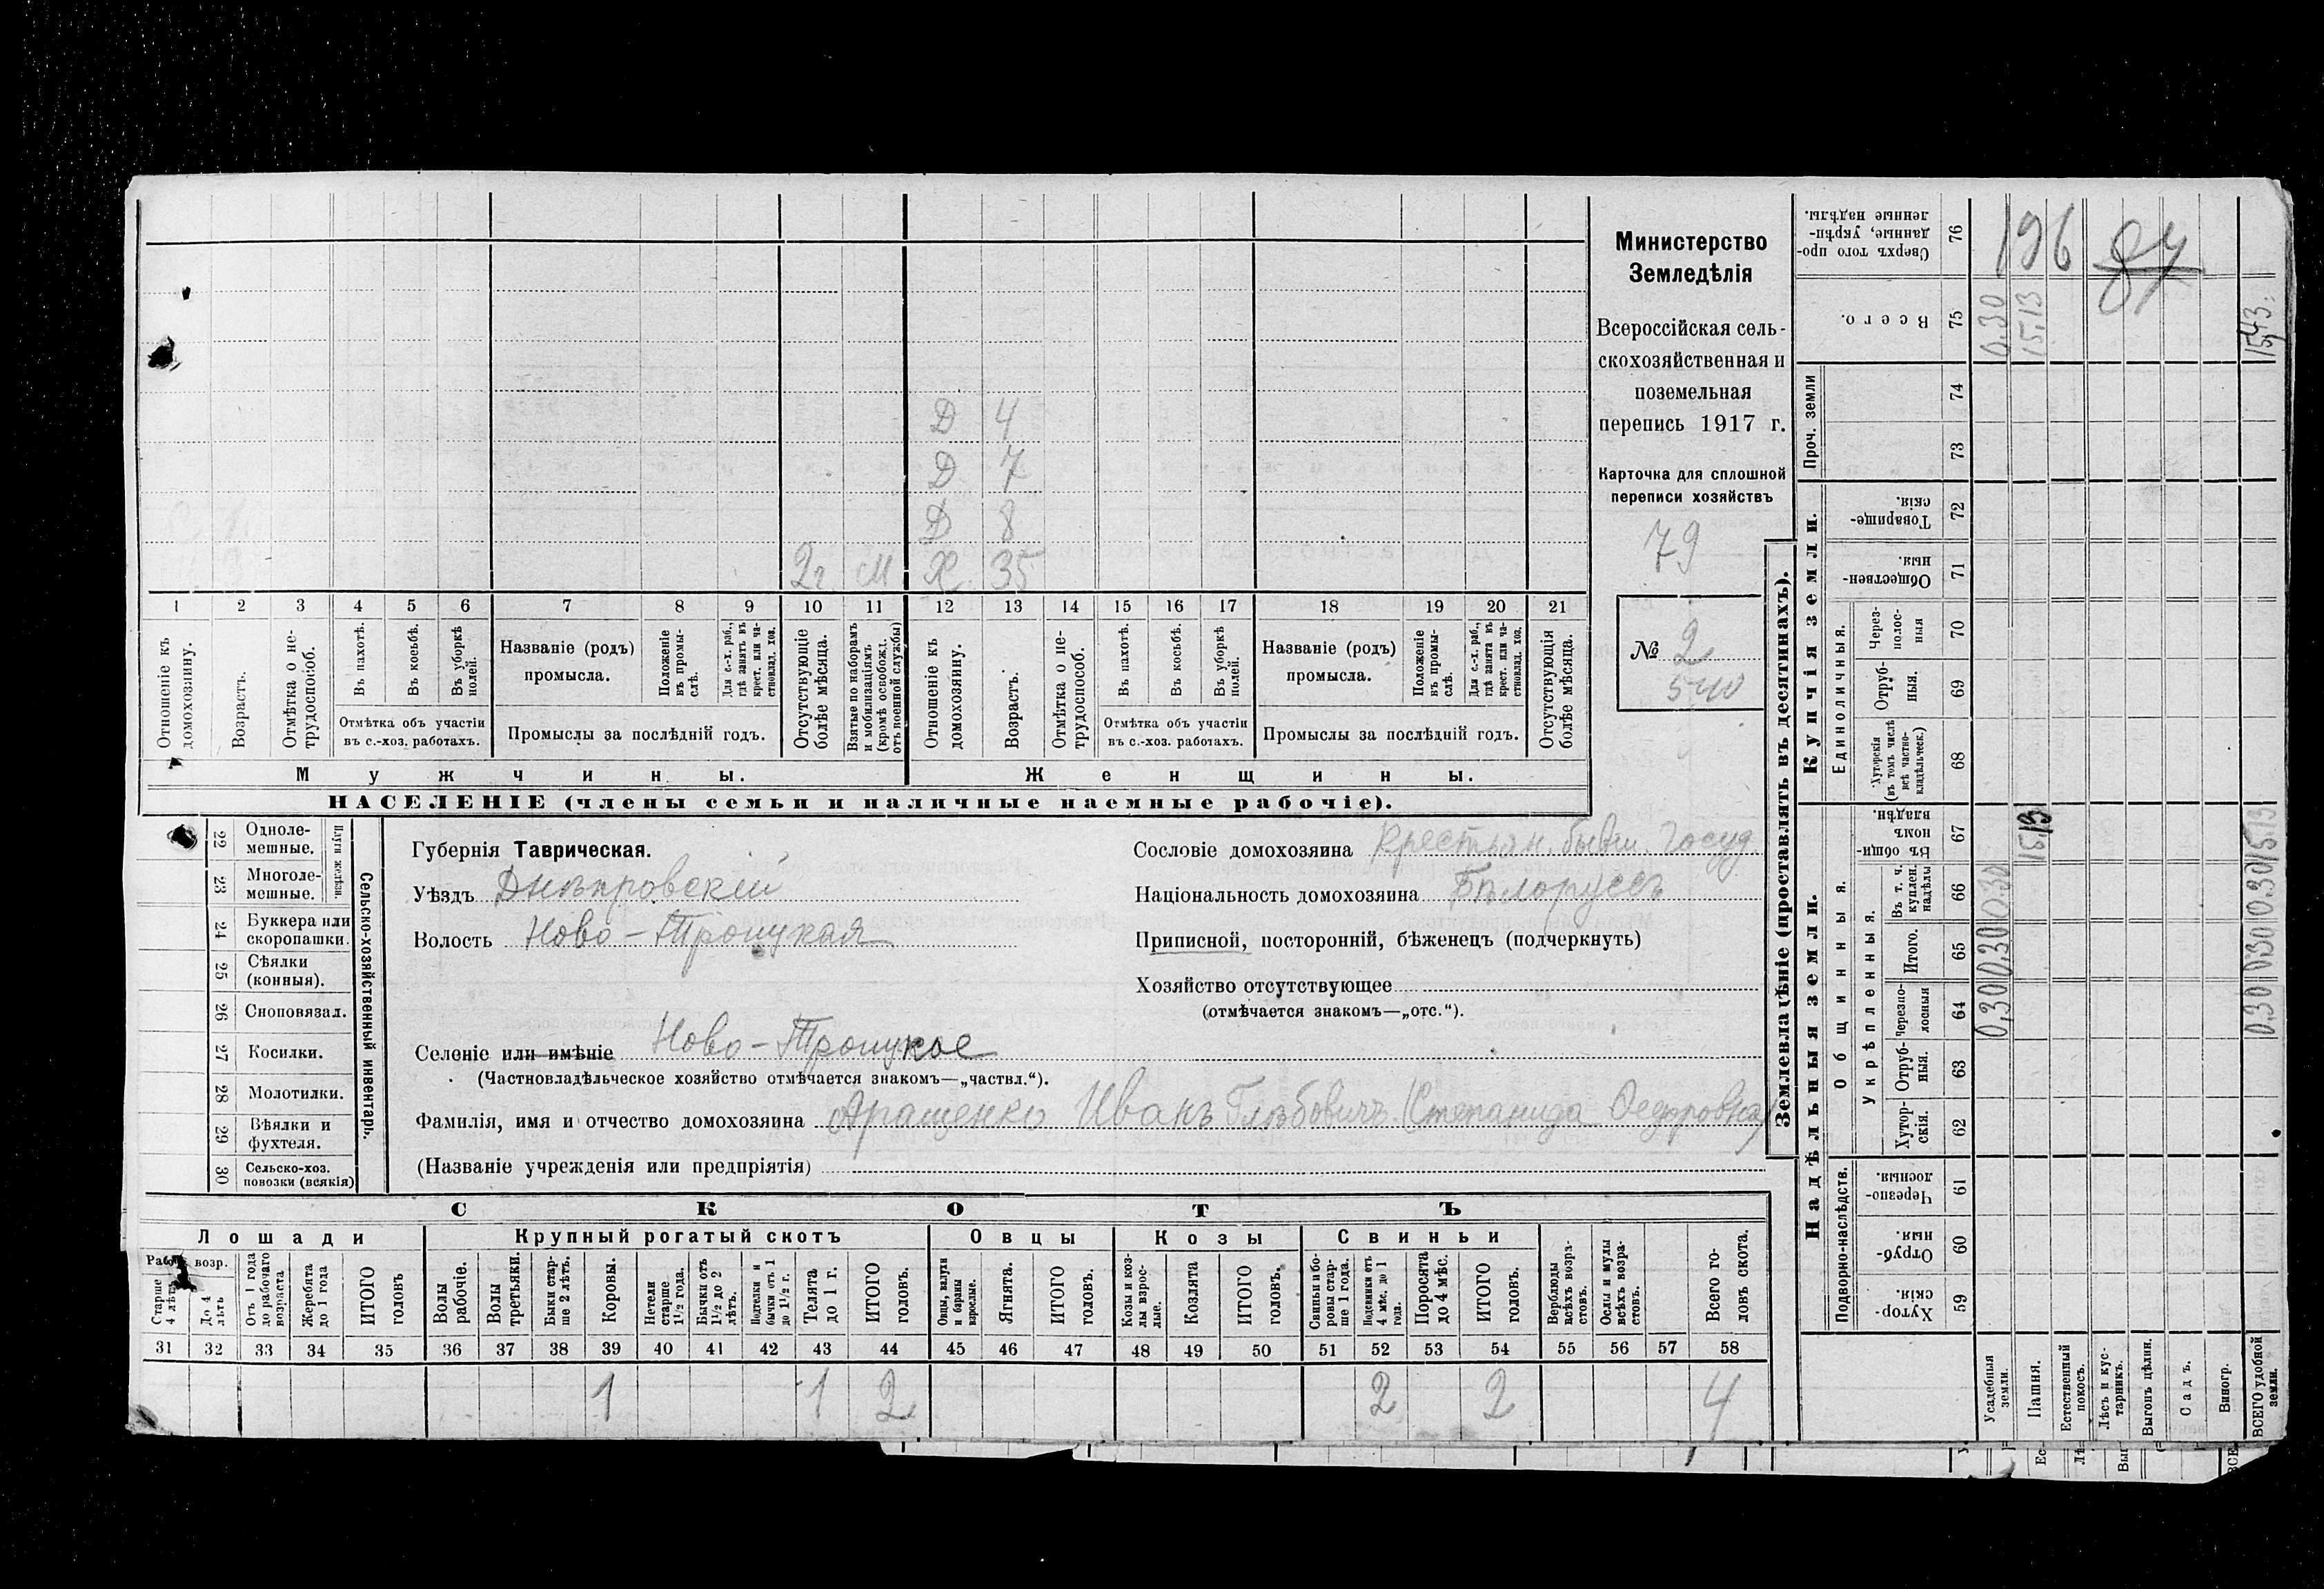 Министерство
Земледѣлія
Всероссійская сель-
скохозяйственная и
поземельная
перепись 1917 г.
Карточка для сплошной
переписи хозяйствъ
79
№ 2
540
Д 4
Д 7
Д 8
2г М Х 35
1 2 3 4 5 6 7 8 9 10 11 12 13 14 15 16 17 18 19 20 21
Отношеніе къ домохозяину.
Возрастъ.
Отмѣтка о не-трудоспособ.
Въ пахотѣ.
Въ косьбѣ.
Въ уборкѣ полей.
Отмѣтка объ участіи
въ с.-хоз. работахъ.
Названіе (родъ)
промысла.
Положеніе въ промы-слѣ.
Для с.-х. раб., гдѣ занятъ въ крест. или ча-стновлад. хоз.
Промыслы за послѣдній годъ.
Отсутствующіе болѣе мѣсяца.
Взятые по наборамъ и мобилизаціямъ (кромѣ освобожд. отъ военной службы)
Отношеніе къ домохозяину.
Возрастъ.
Отмѣтка о не-трудоспособ.
Въ пахотѣ.
Въ косьбѣ.
Въ уборкѣ полей.
Отмѣтка объ участіи
въ с.-хоз. работахъ.
Названіе (родъ)
промысла.
Положеніе въ промы-слѣ.
Для с.-х. раб., гдѣ занята въ крест. или ча-стновлад. хоз.
Промыслы за послѣдній годъ.
Отсутствующія болѣе мѣсяца.
Мужчины.
Женщины.
НАСЕЛЕНІЕ (члены семьи и наличные наемные рабочіе).
Сельско-хозяйственный инвентарь.
Плуги желѣзн.
22 Одноле-мешные.
23 Многоле-мешные.
24 Буккера или скоропашки.
25 Сѣялки (конныя).
26 Сноповязал.
27 Косилки.
28 Молотилки.
29 Вѣялки и фухтеля.
30 Сельско-хоз. повозки (всякія)
Губернія Таврическая.
Уѣздъ Днѣпровскій
Волость Ново-Троицкая
Селеніе или имѣніе Ново-Троицкое
(Частновладѣльческое хозяйство отмѣчается знакомъ—„частвл.“).
Фамилія, имя и отчество домохозяина Аращенко Иванъ Глѣбовичъ (Степанида Федоровна)
(Названіе учрежденія или предпріятія)
Сословіе домохозяина Крестьян. бывш. Госуд.
Національность домохозяина Бѣлоруссъ
Приписной, посторонній, бѣженецъ (подчеркнуть)
Хозяйство отсутствующее
(отмѣчается знакомъ—„отс.“).
СКОТЪ
Лошади
Крупный рогатый скотъ
Овцы
Козы
Свиньи
Рабоч. возр.
Старше 4 лѣтъ
До 4 лѣтъ
Отъ 1 года до рабочаго возраста
Жеребята до 1 года
ИТОГО головъ
Волы рабочіе.
Волы третьяки.
Быки стар-ше 2 лѣтъ.
Коровы.
Нетели старше 1½ года.
Бычки отъ 1½ до 2 лѣтъ.
Подтелки и бычки отъ 1 до 1½ г.
Телята до 1 г.
ИТОГО головъ.
Овцы, валухи и бараны взрослые.
Ягнята.
ИТОГО головъ.
Козы и коз-лы взрос-лые.
Козлята
ИТОГО головъ.
Свиньи и бо-ровы стар-ше 1 года.
Подсвинки отъ 4 мѣс. до 1 года.
Поросята до 4 мѣс.
ИТОГО головъ.
Верблюды всѣхъ возра-стовъ.
Ослы и мулы всѣхъ возра-стовъ.
Всего го-ловъ скота.
31 32 33 34 35 36 37 38 39 40 41 42 43 44 45 46 47 48 49 50 51 52 53 54 55 56 57 58
1 1 2 2 2 4
Землевладѣніе (проставлять въ десятинахъ).
Надѣльныя земли.
Купчія земли.
Проч. земли
Подворно-наслѣдств.
Общинныя.
Укрѣпленныя.
Единоличныя.
Хутор-скія. 59
Отруб-ныя. 60
Черезпо-лосныя. 61
Хутор-скія. 62
Отруб-ныя. 63
Черезпо-лосныя 64
Итого. 65
Въ т. ч. куплен. надѣлы 66
Въ общи-номъ владѣн. 67
Хуторскія (въ томъ числѣ всѣ частно-владѣльческ.) 68
Отруб-ныя. 69
Через-полос-ныя 70
Обществен-ныя. 71
Товарище-скія. 72
73
74
Всего. 75
Сверхъ того про-данные, укрѣп-ленные надѣлы. 76
Усадебныя земли. 0,30 0.30 0.30 0.30
Пашня. 15.13 15.13
Естественный покосъ.
Лѣсъ и кус-тарникъ.
Выгонъ цѣлин.
Садъ.
Виногр.
ВСЕГО удобной земли. 0.30 0.30 0.30 15.13 15,43.
196
84